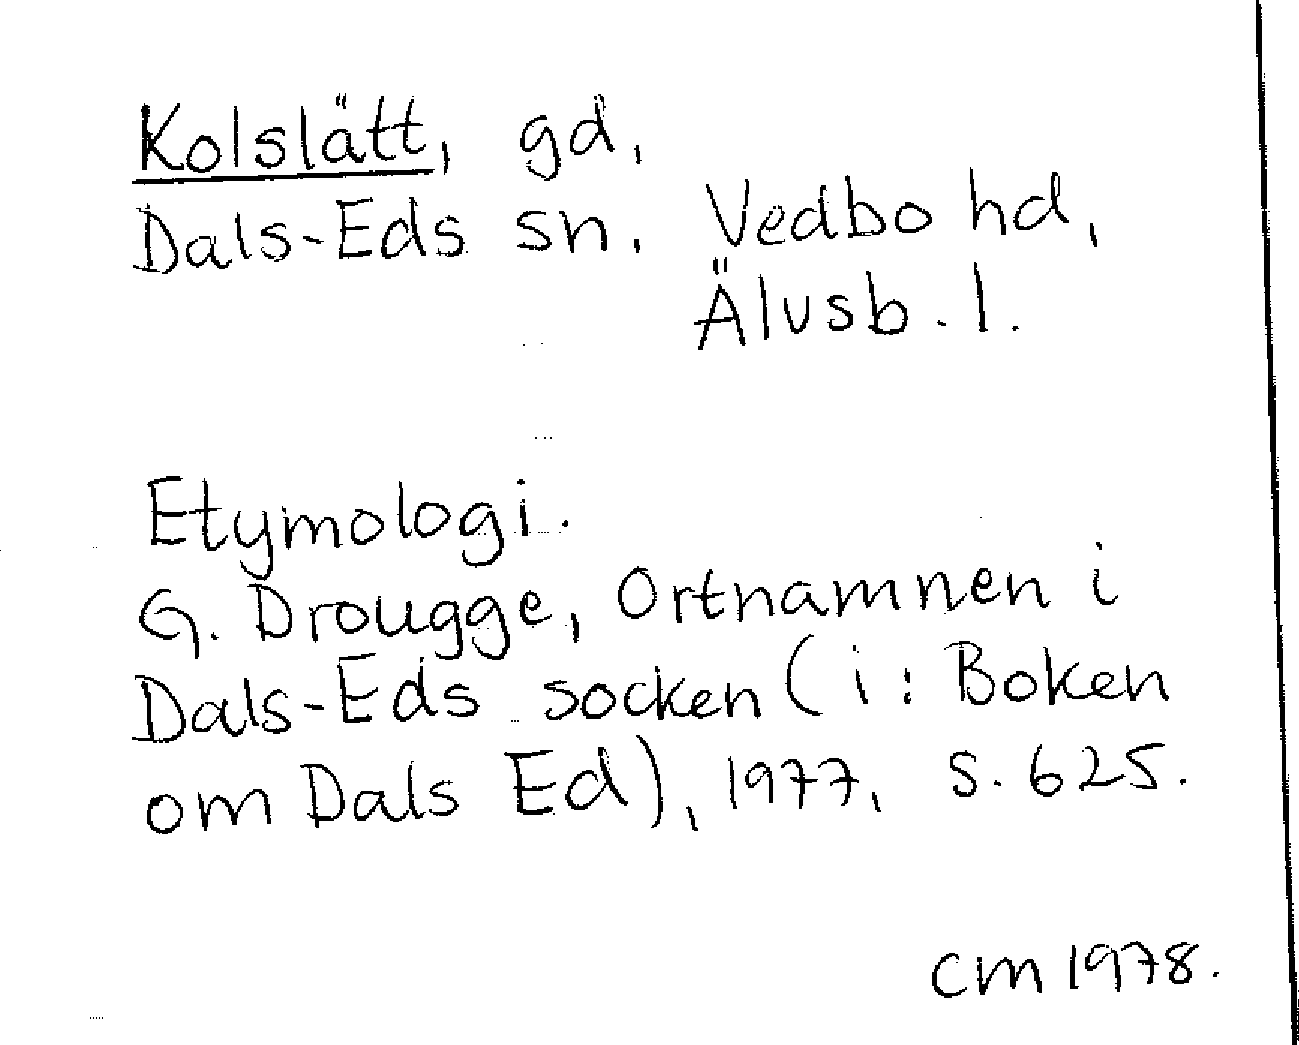 Kolslätt, gd,
Dals-Eds sn, Vedbo hd,
Älvsb. l.
Etymologi.
G. Drougge, Ortnamnen i
Dals-Eds socken (i: Boken
om Dals Ed), 1977, s. 625.
CM 1978.